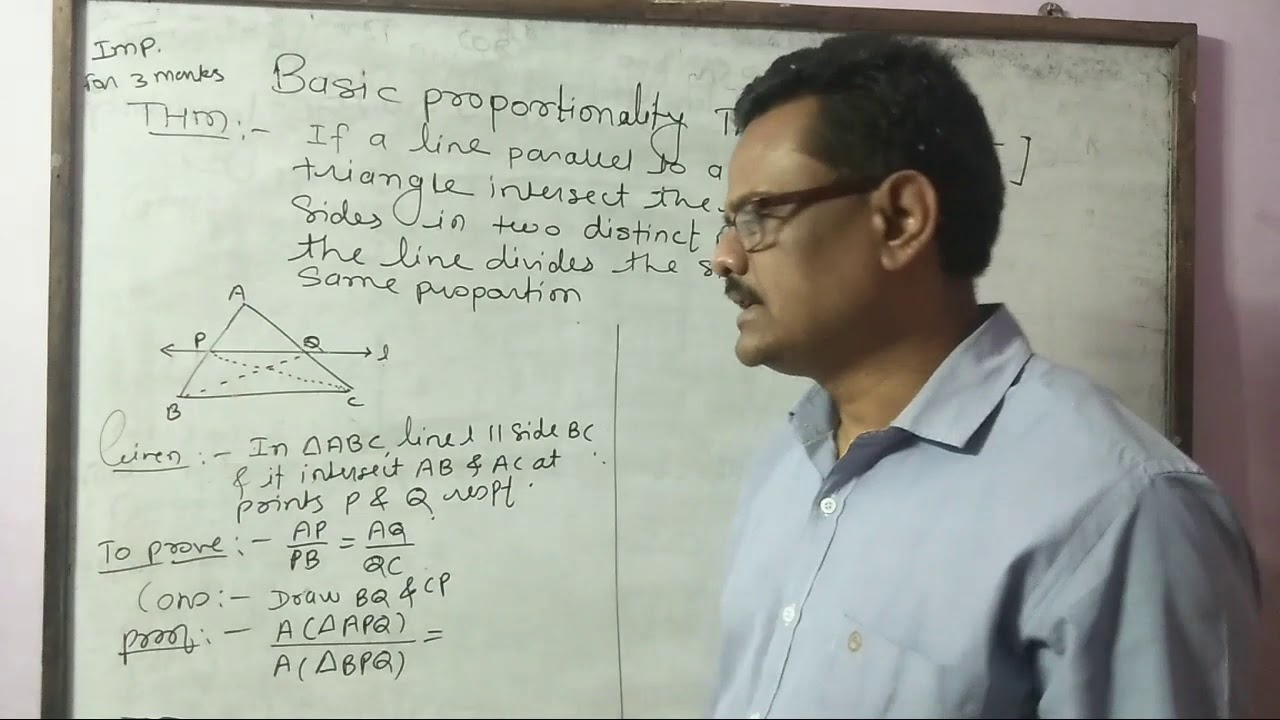 Imp.
for 3 marks
Basic proportionality
THM:- If a line parallel to a
triangle intersect the
sides in two distinct
the line divides the
same proportion
A
P Q l
B C
Given:- In ΔABC, line l || side BC
& it intersect AB & AC at
points P & Q respt.
To prove:- AP/PB = AQ/QC
Cons:- Draw BQ & CP
proof:- A(ΔAPQ)/A(ΔBPQ) =
]